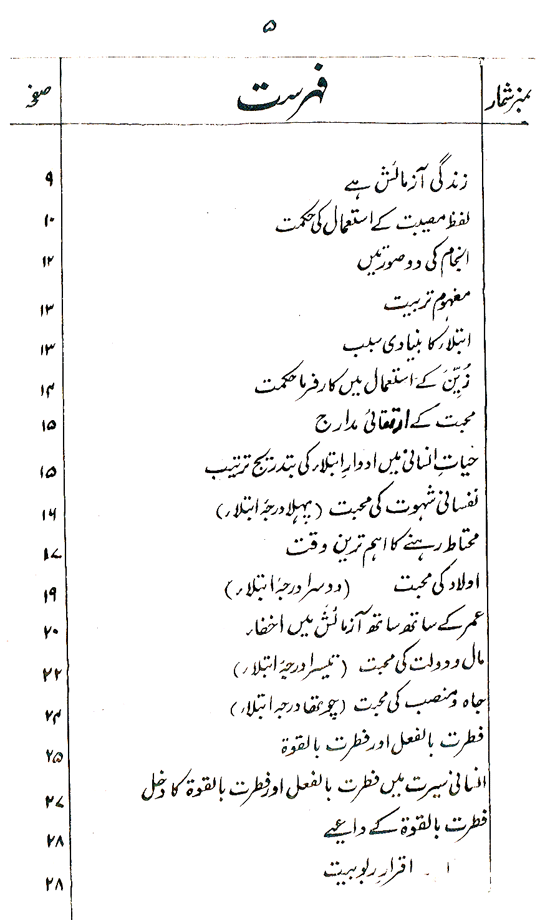 ۵
نمبرشمار فہرست صفحہ
زندگی آزمائش ہے ۹
لفظ مصیبت کے استعمال کی حکمت ۱۰
انجام کی دو صورتیں ۱۲
مفہوم تربیت ۱۳
ابتلاء کا بنیادی سبب ۱۳
زُیِّنَ کے استعمال میں کارفرما حکمت ۱۴
محبت کے ارتقائی مدارج ۱۵
حیاتِ انسانی میں ادوارِ ابتلاء کی بتدریج ترتیب ۱۵
نفسانی شہوت کی محبت (پہلا درجۂ ابتلاء) ۱۶
محتاط رہنے کا اہم ترین وقت ۱۷
اولاد کی محبت (دوسرا درجۂ ابتلاء) ۱۹
عمر کے ساتھ ساتھ آزمائش میں اخفاء ۲۰
مال و دولت کی محبت (تیسرا درجۂ ابتلاء) ۲۲
جاہ و منصب کی محبت (چوتھا درجۂ ابتلاء) ۲۴
فطرت بالفعل اور فطرت بالقوۃ ۲۵
انسانی سیرت میں فطرت بالفعل اور فطرت بالقوۃ کا دخل ۲۷
فطرت بالقوۃ کے داعیے ۲۸
۱ ۔ اقرارِ ربوبیت ۲۸